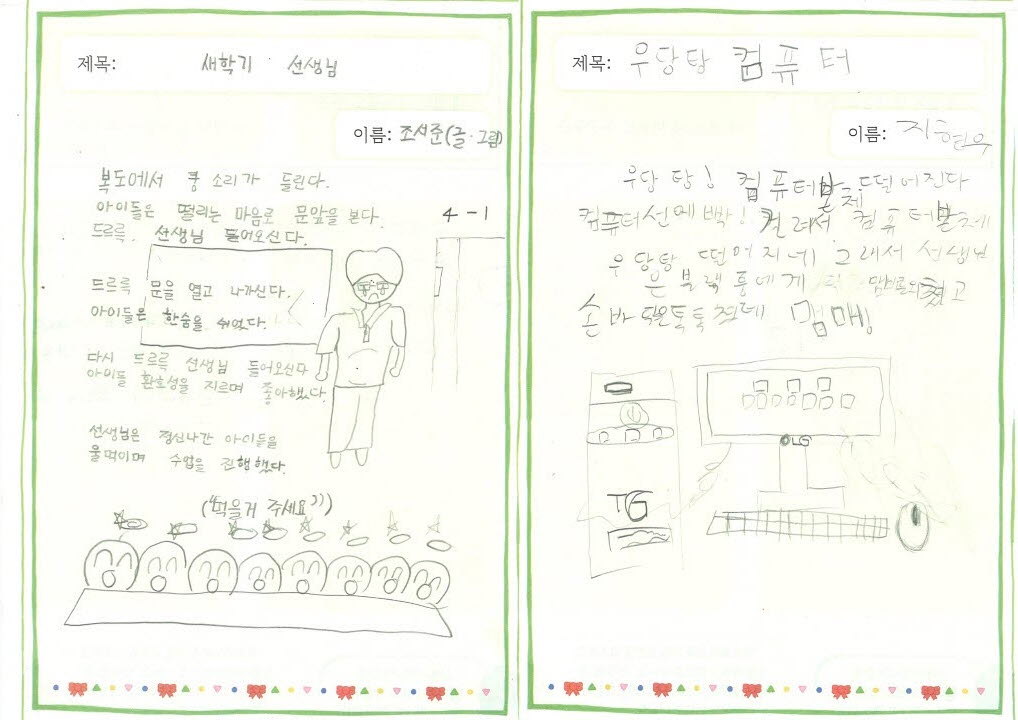 제목: 새학기 선생님
이름: 조서준(글·그림)
복도에서 쿵 소리가 들린다.
아이들은 떨리는 마음로 문앞을 본다.
드르륵. 선생님 들어오신다.
4-1
드르륵 문을 열고 나가신다.
아이들은 한숨을 쉬었다.
다시 드르륵 선생님 들어오신다
아이들 환호성을 지르며 좋아했다.
선생님은 정신나간 아이들을
울며이며 수업을 진행했다.
("먹을거 주세요")
제목: 우당탕 컴퓨터
이름: 지현우
우당탕! 컴퓨터본체 떨어진다
컴퓨터선에 빡! 걸려서 컴퓨터본체
우당탕 떨어지네 그래서 선생님
은 블랙홍에게 맴매로외쳤고
손바닥은톡톡쳤네 맴매!
LG
TG